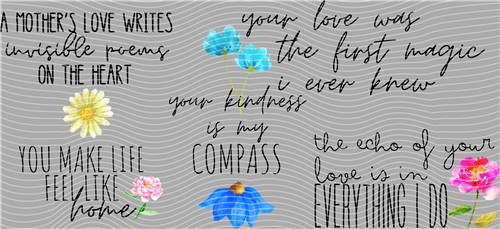 A MOTHER'S LOVE WRITES
invisible poems
ON THE HEART
your love was
the first magic
i ever knew
your kindness
is my
COMPASS
YOU MAKE LIFE
FEEL LIKE
home
the echo of your
love is in
EVERYTHING I DO